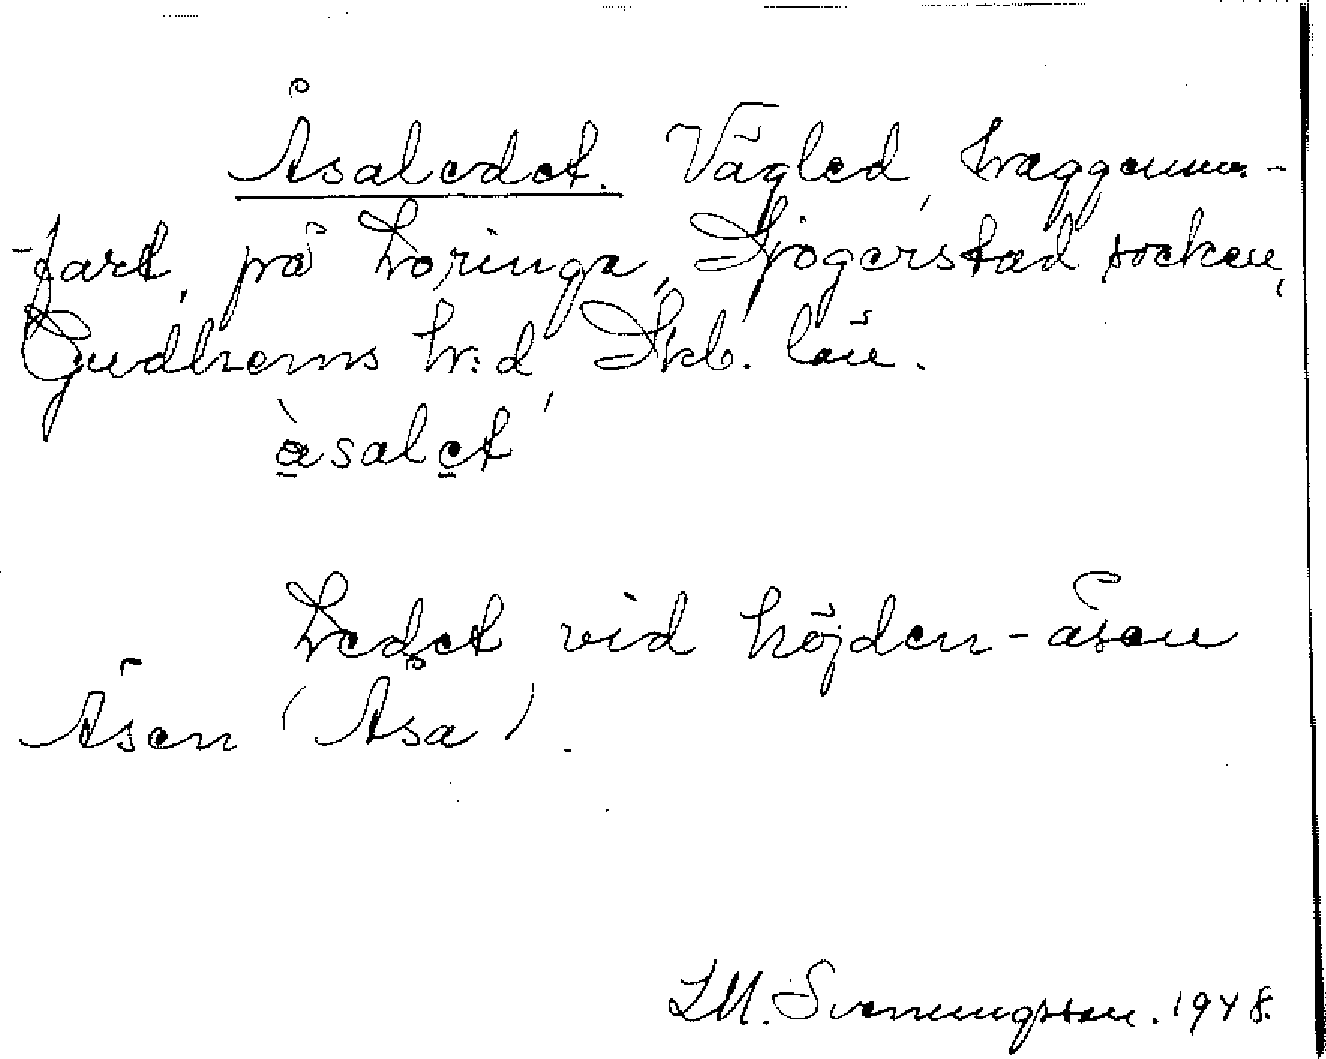 Åsaledet. Vägled, vaggenom-
-fart, på Loringa, Sjogerstad socken,
Gudhems h:d, Skb. län.
àsalet
Ledet vid höjden-åsen
Åsen (Åsa).
LM. Svenungsson. 1948.